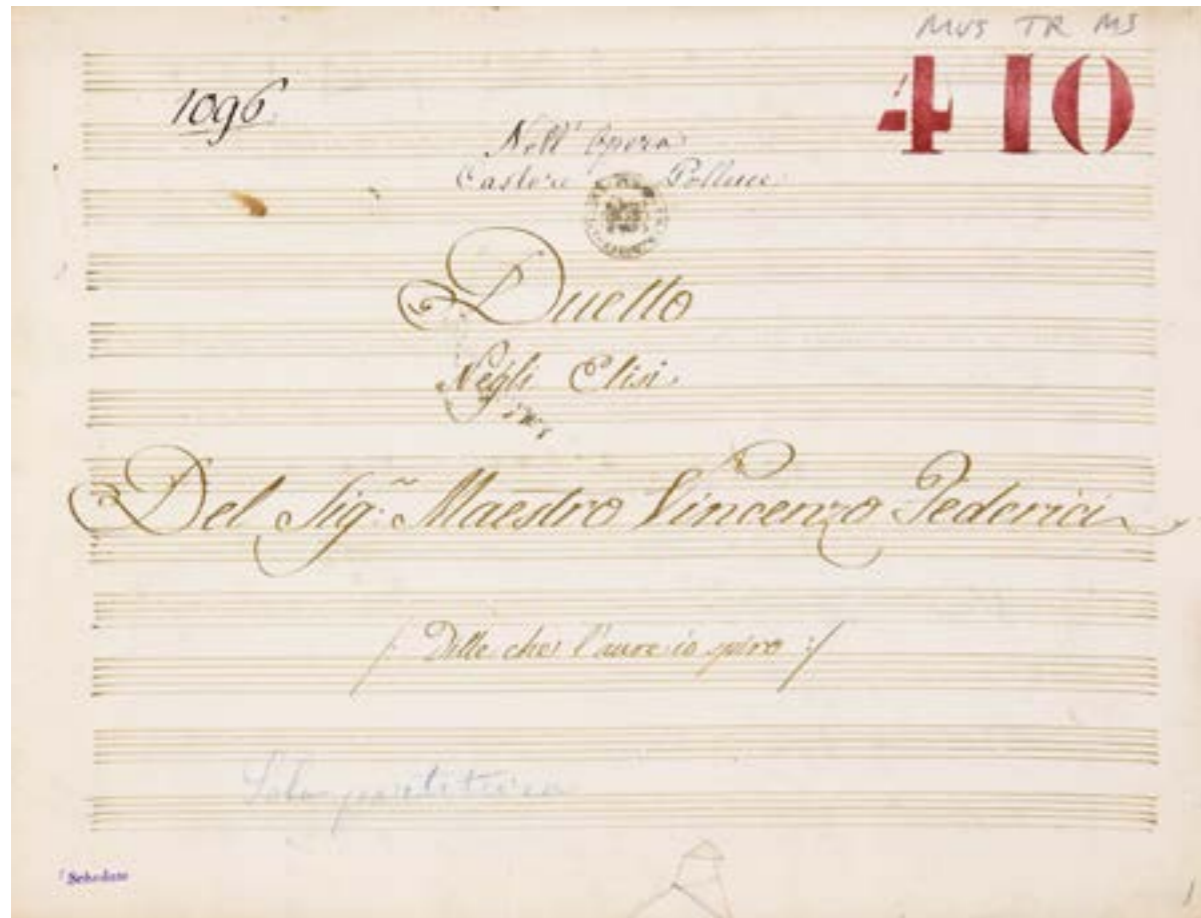 MUS TR MS
410
1096
Nell' Opera
Castore Polluce
Duetto
Negli Elisi.
Del Sig.r Maestro Vincenzo Federici
/: Dille che l'aure io spiro :/
Solo partitura
Schedato